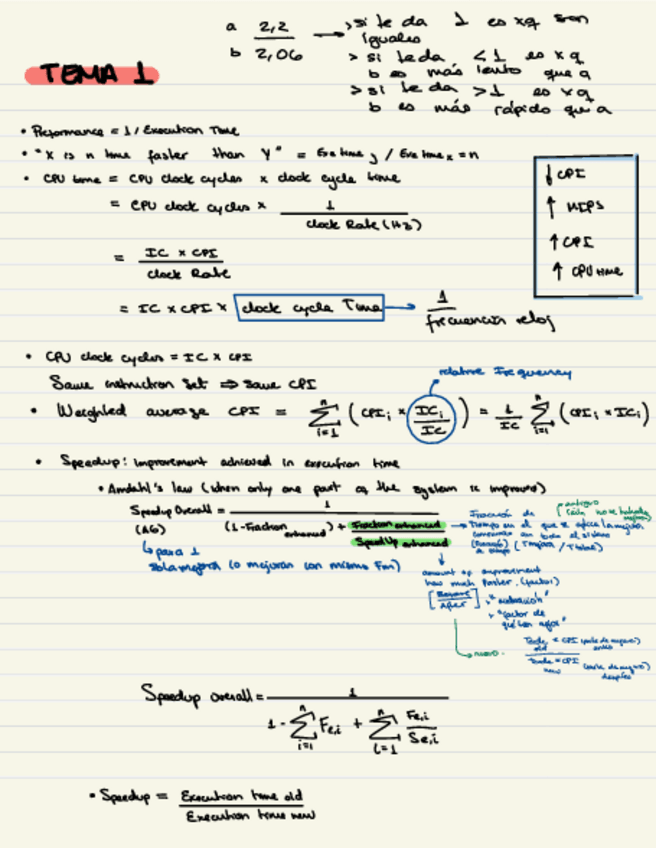 a 2,2
b 2,06
> si te da 1 es xq son iguales
> si te da < 1 es xq b es más lento que a
> si te da > 1 es xq b es más rápido que a
TEMA 1
• Performance = 1 / Execution Time
• "X is n time faster than Y" = Exe time y / Exe time x = n
• CPU time = CPU clock cycles x clock cycle time
= CPU clock cycles x 1 / clock Rate (Hz)
= IC x CPI / clock Rate
= IC x CPI x clock cycle Time → 1 / frecuencia reloj
↓ CPI
↑ MIPS
↑ CPI
↑ CPU time
• CPU clock cycles = IC x CPI
Same instruction set ⇒ same CPI
relative Frequency
• Weighted average CPI = Σ i=1 n (CPIi x ICi / IC) = 1 / IC Σ i=1 n (CPIi x ICi)
• Speedup: Improvement achieved in execution time
• Amdahl's law (when only one part of the system is improved)
Speedup Overall = 1 / (1 - Fraction enhanced) + Fraction enhanced / SpeedUp enhanced
(AG)
↳ para 1
sola mejora (o mejoran con mismo Fm)
Fracción de
tiempo en el que se aplica la mejora
(Tmejora / Ttotal)
amount of improvement
how much faster. (factor)
Before / After
"factor de
old
new
después
Speedup overall = 1 / 1 - Σ i=1 n Fe,i + Σ i=1 n Fe,i / Se,i
• Speedup = Execution time old / Execution time new